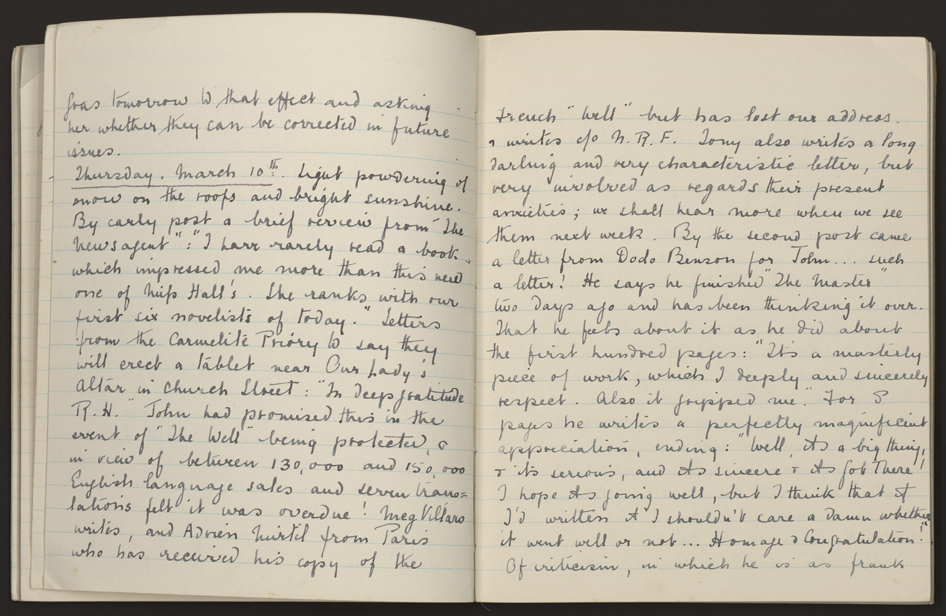 foas tomorrow to that effect and asking
her whether they can be corrected in future
issues.
Thursday. March 10th. Light powdering of
snow on the roofs and bright sunshine.
By early post a brief review from "The
Newsagent": "I have rarely read a book
which impressed me more than this new
one of Miss Hall's. She ranks with our
first six novelists of today." Letters
from the Carmelite Priory to say they
will erect a tablet near Our Lady's
Altar in Church Street: "In deep gratitude
R.H." John had promised this in the
event of "The Well" being protected, &
in view of between 130,000 and 150,000
English language sales and seven trans=
lations felt it was overdue! Meg Villars
writes, and Adrien Mirtil from Paris
who has received his copy of the
French "Well" but has lost our address.
& writes c/o N.R.F. Tony also writes a long
darling and very characteristic letter, but
very involved as regards their present
anxieties; we shall hear more when we see
them next week. By the second post came
a letter from Dodo Benson for John... such
a letter! He says he finished "The Master"
two days ago and has been thinking it over.
That he feels about it as he did about
the first hundred pages: "It's a masterly
piece of work, which I deeply and sincerely
respect. Also it gripped me." For 8
pages he writes a perfectly magnificent
appreciation, ending: "Well, it's a big thing,
& it's serious, and it's sincere & it's got there!
I hope it's going well, but I think that if
I'd written it I shouldn't care a damn whether
it went well or not... Homage & Congratulation!"
Of criticism, in which he is as frank